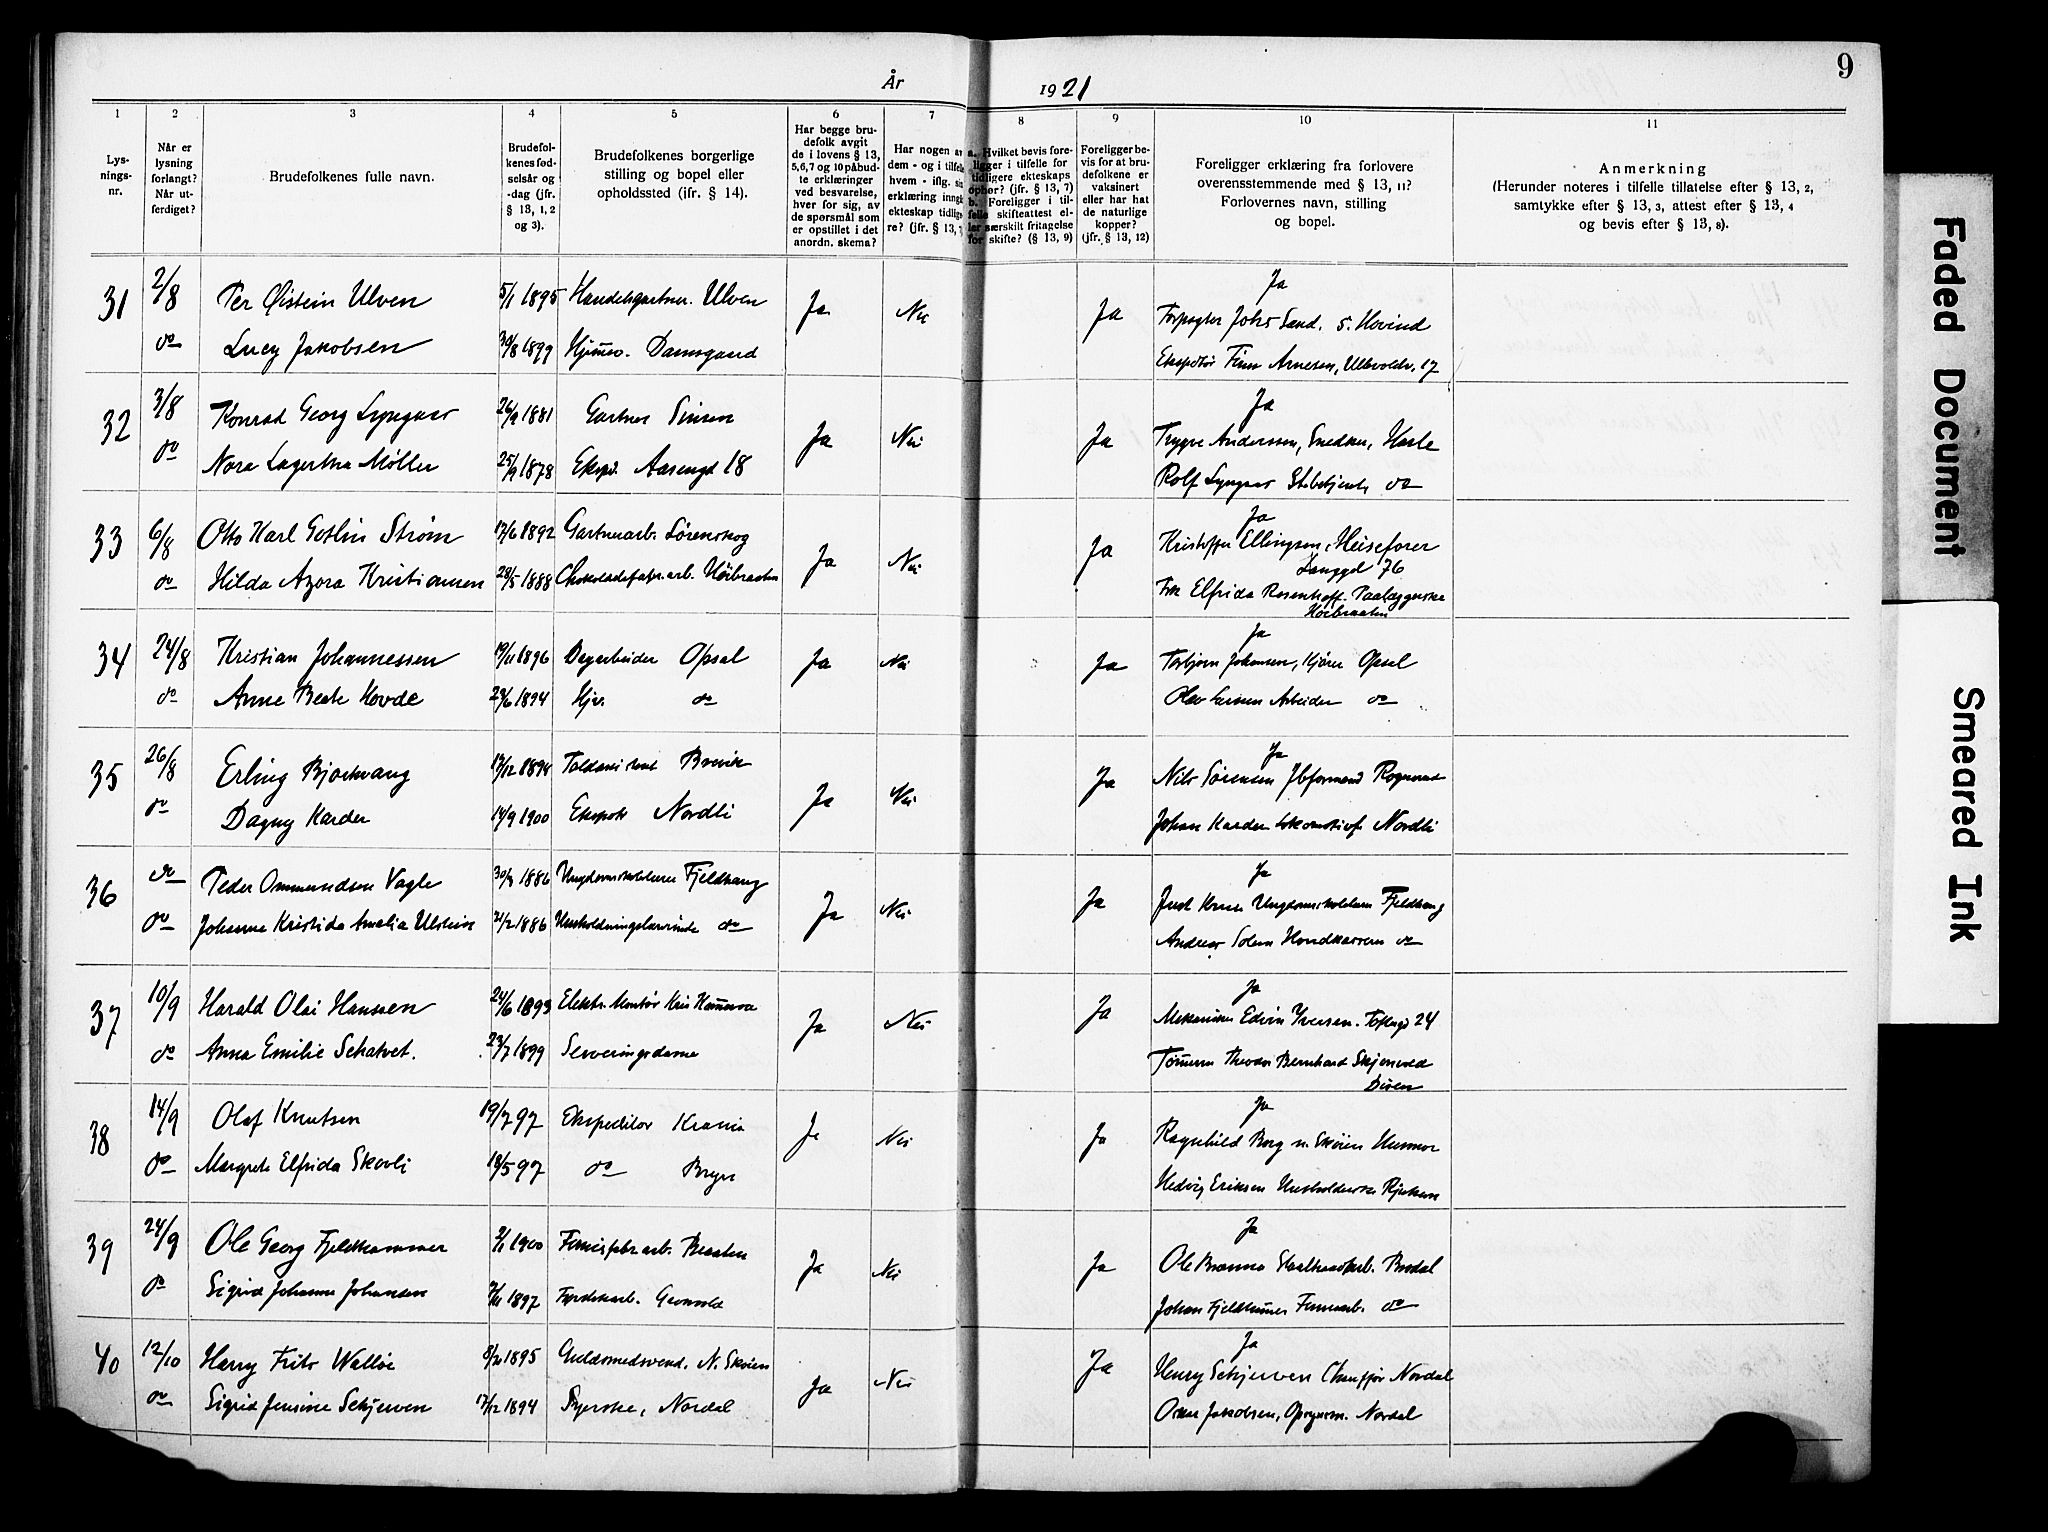 År 1921
9
1
2
3
4
5
6
7
8
9
10
11
Lys-
nings-
nr.
Når er
lysning
forlangt?
Når ut-
ferdiget?
Brudefolkenes fulle navn.
Brudefol-
kenes fød-
selsår og
-dag (jfr.
§ 13, 1, 2
og 3).
Brudefolkenes borgerlige
stilling og bopel eller
opholdssted (jfr. § 14).
Har begge bru-
defolk avgit
de i lovens § 13,
5,6,7 og 10 påbud-
te erklæringer
ved besvarelse,
hver for sig, av
de spørsmål som
er opstillet i det
anordn. skema?
Har nogen av
dem - og i tilfelle
hvem - iflg. sin
erklæring inngå
ekteskap tidlige-
re? (jfr. § 13,
a. Hvilket bevis fore-
ligger i tilfelle for
tidligere ekteskaps
ophør? (jfr. § 13, 7)
b. Foreligger i til-
felle skifteattest el-
ler særskilt fritagelse
for skifte? (§ 13, 9)
Foreligger be-
vis for at bru-
defolkene er
vaksinert
eller har hat
de naturlige
kopper?
(jfr. § 13, 12)
Foreligger erklæring fra forlovere
overensstemmende med § 13, 11?
Forlovernes navn, stilling
og bopel.
Anmerkning
(Herunder noteres i tilfelle tillatelse efter § 13, 2,
samtykke efter § 13, 3, attest efter § 13, 4
og bevis efter § 13, 8).
31 2/8 Per Øistein Ulven 5/1 1895 Handelsgartner. Ulven Ja Nei Ja Ja
Forpagter Johs Sand. S. Hovind
do Lucy Jakobsen 30/8 1899 Hjemmev. Damsgaard
Ekspeditør Finn Arnesen, Ullevoldv. 17
32 3/8 Konrad Georg Lyngaas 26/9 1881 Gartner Sinsen Ja Nei Ja Ja
Trygve Anderssen, Snedker, Hasle
do Nora Lagertha Møller 25/9 1878 Eksp. Aasengd 18
Rolf Lyngaas do
33 6/8 Otto Karl Gotlin Strøm 17/6 1892 Gartnerarb. Lørenskog Ja Nei Ja Ja
Kristoffer Ellingsen, Heisefører
Langgd 76
do Hilda Azora Kristiansen 28/5 1888 Chokoladefabr.arb. Høibraaten
Frk Elfrida Rosenhoff. Paalæggerske
Høibraaten
34 24/8 Kristian Johannessen 19/11 1896 Dagarbeider Opsal Ja Nei Ja Ja
Torbjørn Johansen, Kjører Opsal
do Anne Beate Hovde 29/6 1894 Hjv. do
Olav Larsen Arbeider do
35 26/8 Erling Bjorkvang 17/12 1894 Toldassistent Brevik Ja Nei Ja Ja
Nils Sørensen Jbformand Rognerud
do Dagny Karder 14/9 1900 Ekspeditr Nordli
Johan Karder Lokomotivf. Nordli
36 do Peder Ommundsen Vagle 30/8 1886 Ungdomskolelærer Fjeldhaug Ja Nei Ja Ja
Ungdomskolelærer Fjeldhaug
do Johanne Kristida Amalia Ulstein 21/2 1886 Husholdningslærerinde do
Andreas Solem do
37 10/9 Harald Olai Hanssen 24/6 1893 Elektr. Montør Ja Nei Ja Ja
Mekaniker Edvin Iversen. Toftesgd 24
do Anna Emilie Schatvet. 23/7 1899 Serveringsdame
Tømmerm Theodor Bernhard Skjervold
Disen
38 14/9 Olaf Knutsen 19/7 97 Ekspeditør Krania Ja Nei Ja Ja
Ragnhild Borg n. Skøien
do Margrete Elfrida Skovli 18/5 97 do Bryn
Hedvig Eriksen Husholderske Rjukan
39 24/9 Ole Georg Fjeldhammer 9/1 1900 Fernisfabr.arb. Braaten Ja Nei Ja Ja
Ole Brænna Brodal
do Sigrid Johanne Johansen 7/11 1897 Fyrstikarb. Grønvold
Johan Fjeldhammer Fernisarb. do
40 12/10 Harry Frits Walløe 8/2 1895 Guldsmedsvend. N. Skøien Ja Nei Ja Ja
Henry Schjerven Chauffør Nordal
do Sigrid Jensine Schjerven 17/12 1894 Syerske, Nordal
Oskar Jakobsen, Opsynsm. Nordal
Faded Document
Smeared Ink